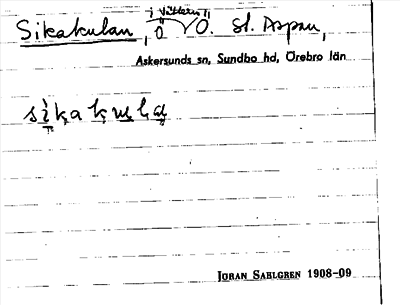 i Vättern
Sikakulan, ö Ö. St. Aspan,
Askersunds sn, Sundbo hd, Örebro län
sìkakula
JÖRAN SAHLGREN 1908-09